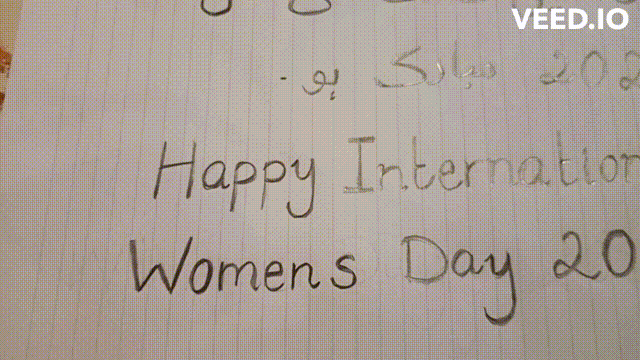 VEED.IO
202 مبارک ہو -
Happy Internation
Womens Day 20